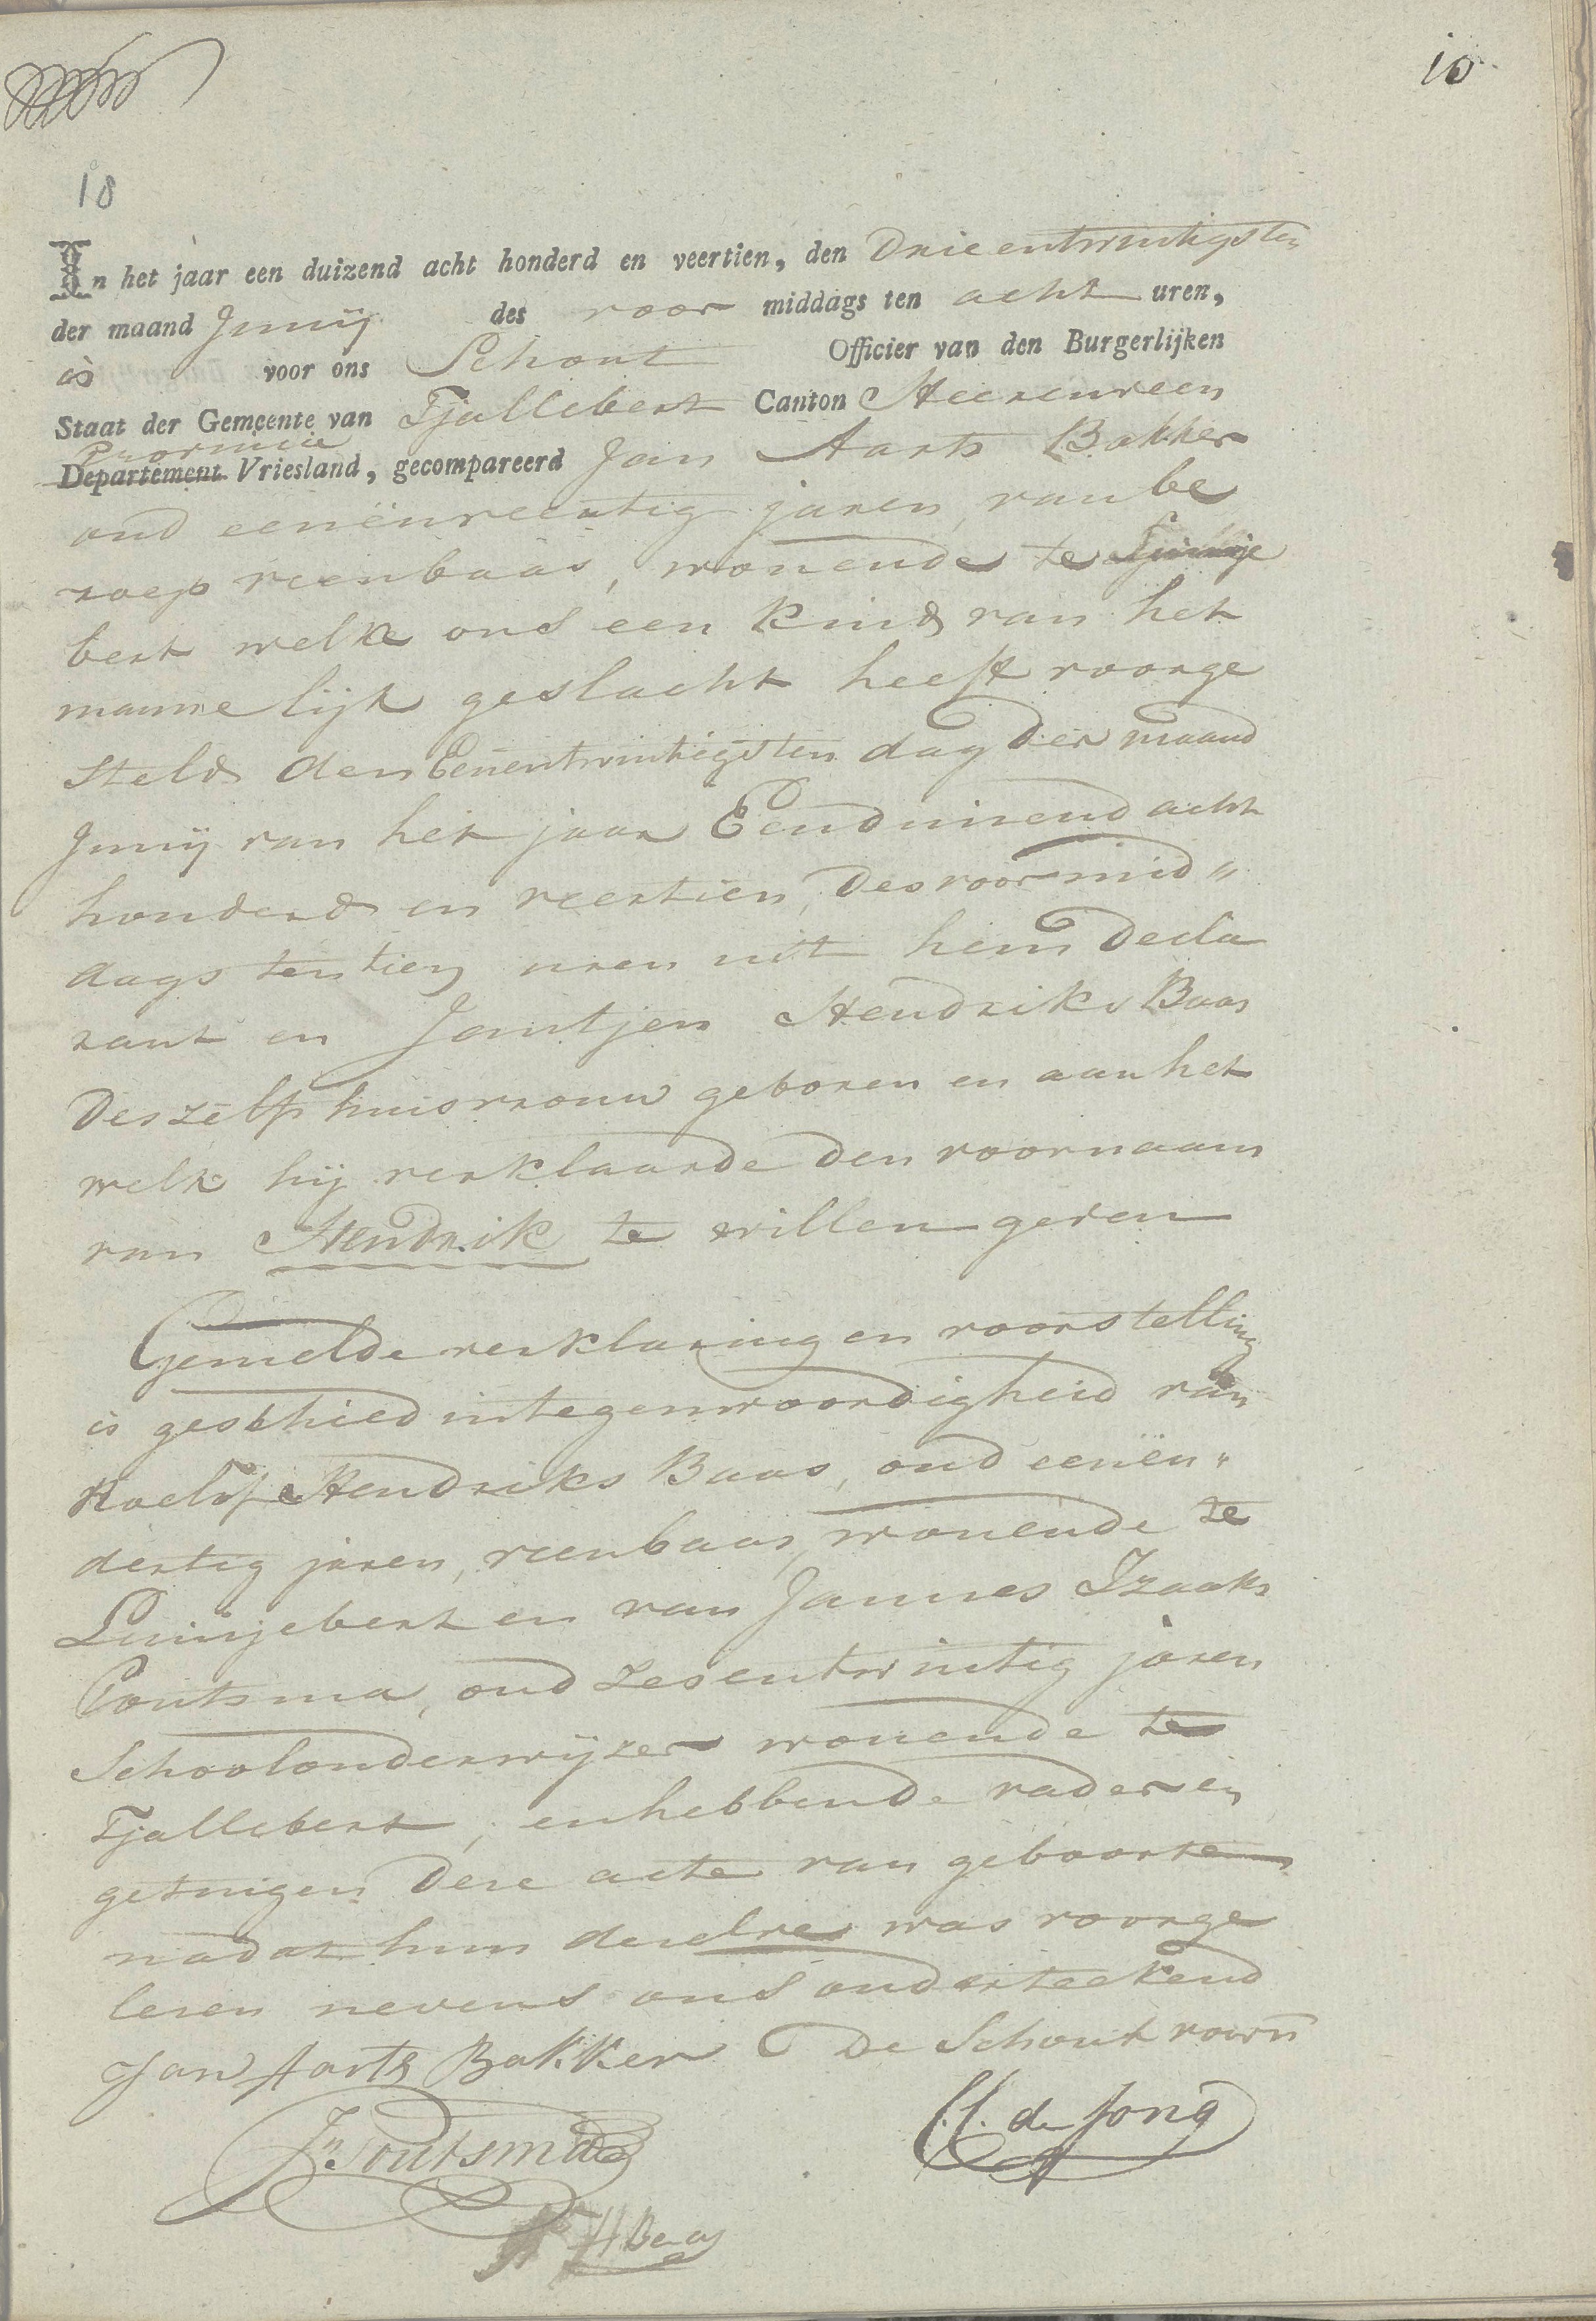 10
18
In het jaar een duizend acht honderd en veertien, den Drieentwintigsten
der maand Junij des voor middags ten acht uren,
is voor ons Schout Officier van den Burgerlijken
Staat der Gemeente van Tjallebert Canton Heerenveen
Provincie
Departement Vriesland, gecompareerd Jan Aarts Bakker
oud eenënveertig jaren, van be
roep veenbaas, wonende te Luinje
bert welke ons een kind van het
mannelijk geslacht heeft voorge
steld den Eenentwintigsten dag der maand
Junij van het jaar Eenduizend acht
honderd en veertien, des voormid"
dags ten tien uren uit hem decla
rant en Jantjen Hendriks Baas
deszelfs huisvrouw geboren en aan het
welk hij verklaarde den voornaam
van Hendrik te willen geven
Gemelde verklaring en voorstelling
is geschied in tegenwoordigheid van
Roelof Hendriks Baas, oud eenën"
dertig jaren, veenbaas, wonende te
Luinjebert en van Jannes Izaaks
Poutsma, oud zesentwintig jaren
Schoolonderwijzer wonende te
Tjallebert, en hebbende vader en
getuigen deze acte van geboorte
nadat hun dezelve was voorge
lezen nevens ons onderteekend
Jan Aarts Bakker De Schout voorn
Js Poutsma
de Jong
R H Baas